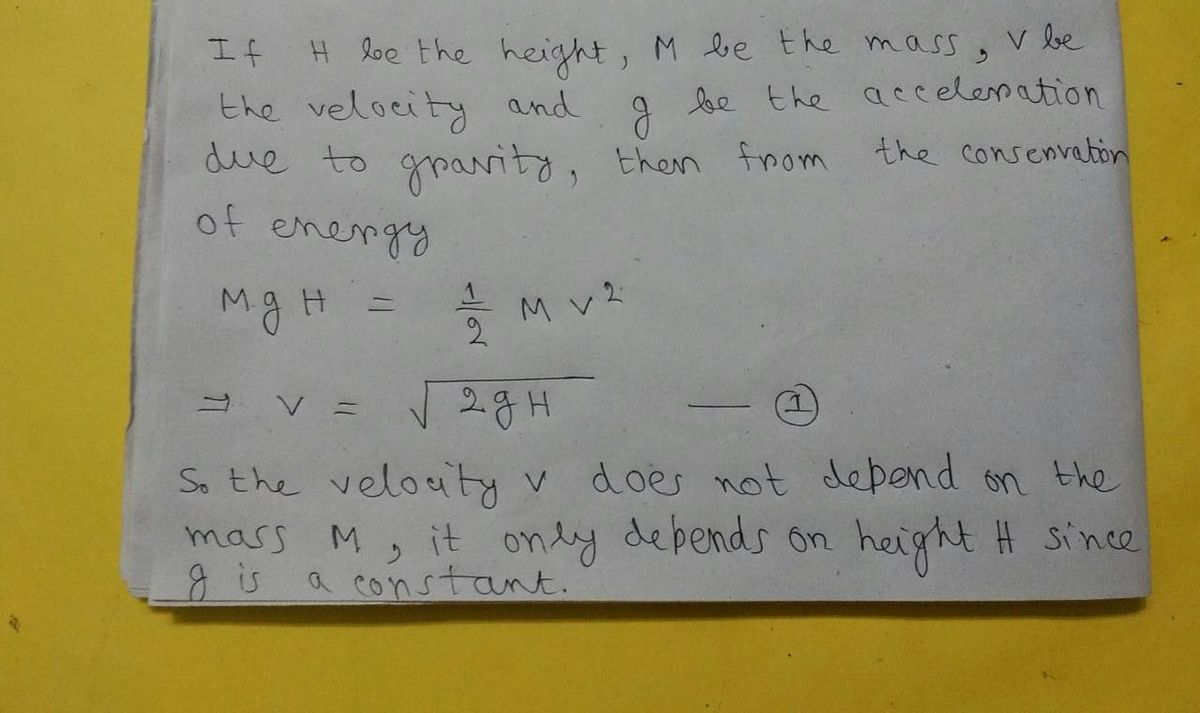 If H be the height, M be the mass, v be
the velocity and g be the acceleration
due to gravity, then from the conservation
of energy
MgH = 1/2 Mv²
⇒ v = √2gH — ①
So the velocity v does not depend on the
mass M, it only depends on height H since
g is a constant.